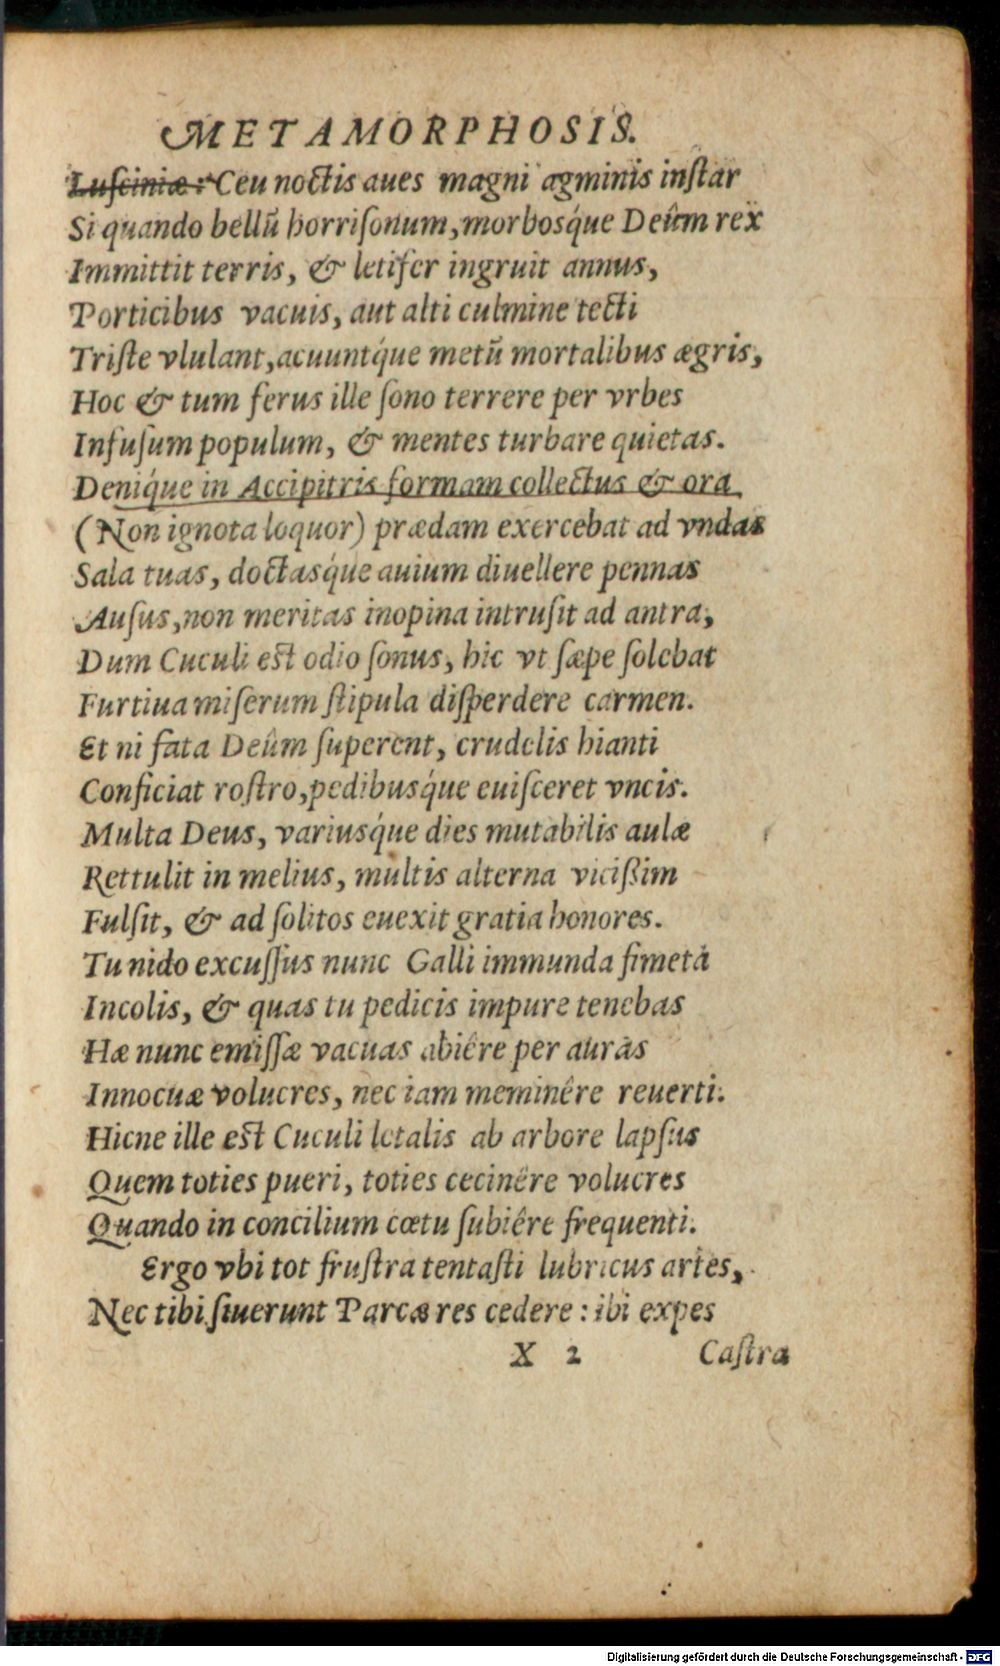 METAMORPHOSIS.
Lusciniæ: Ceu noctis aues magni agminis instar
Si quando bellū horrisonum, morbosq́ue Deûm rex
Immittit terris, & letifer ingruit annus,
Porticibus vacuis, aut alti culmine tecti
Triste vlulant, acuuntq́ue metū mortalibus ægris,
Hoc & tum ferus ille sono terrere per vrbes
Infusum populum, & mentes turbare quietas.
Deniq́ue in Accipitris formam collectus & ora
(Non ignota loquor) prædam exercebat ad vndas
Sala tuas, doctasq́ue auium diuellere pennas
Ausus, non meritas inopina intrusit ad antra,
Dum Cuculi est odio sonus, hic vt sæpe solebat
Furtiua miserum stipula disperdere carmen.
Et ni fata Deûm superent, crudelis hianti
Conficiat rostro, pedibusq́ue euisceret vncis.
Multa Deus, variusq́ue dies mutabilis aulæ
Rettulit in melius, multis alterna vicißim
Fulsit, & ad solitos euexit gratia honores.
Tu nido excussus nunc Galli immunda fimeta
Incolis, & quas tu pedicis impure tenebas
Hæ nunc emissæ vacuas abiêre per auras
Innocuæ volucres, nec iam meminêre reuerti.
Hicne ille est Cuculi letalis ab arbore lapsus
Quem toties pueri, toties cecinêre volucres
Quando in concilium cœtu subiêre frequenti.
Ergo vbi tot frustra tentasti lubricus artes,
Nec tibi siuerunt Parcæ res cedere: ibi expes
X 2 Castra
Digitalisierung gefördert durch die Deutsche Forschungsgemeinschaft - DFG